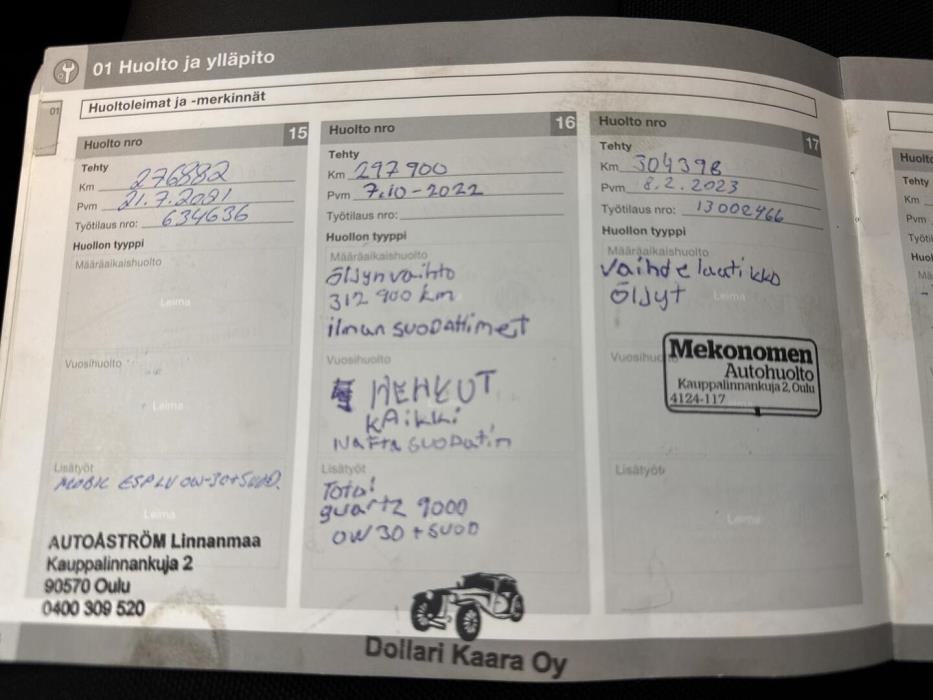 01 Huolto ja ylläpito
01
Huoltoleimat ja -merkinnät
Huolto nro 15
Tehty
Km 276882
Pvm 21.7.2021
Työtilaus nro: 634636
Huollon tyyppi
Määräaikaishuolto
Leima
Vuosihuolto
Leima
Lisätyöt
MOBIL ESP LV 0W-30+SUOD.
Leima
AUTOÅSTRÖM Linnanmaa
Kauppalinnankuja 2
90570 Oulu
0400 309 520
Huolto nro 16
Tehty
Km 297 900
Pvm 7.10-2022
Työtilaus nro:
Huollon tyyppi
Määräaikaishuolto
öljynvaihto
312 900 km
ilman suodattimet
Vuosihuolto
HEHKUT
KAikki
Naftasuodatin
Lisätyöt
Total
quartz 9000
0W30 + SUOD
Dollari Kaara Oy
Huolto nro 17
Tehty
Km 304398
Pvm 8.2.2023
Työtilaus nro: 13002466
Huollon tyyppi
Määräaikaishuolto
vaihdelaatikko
öljyt
Leima
Mekonomen
Autohuolto
Kauppalinnankuja 2, Oulu
4124-117
Lisätyöt
Leima
Tehty
Km
Pvm